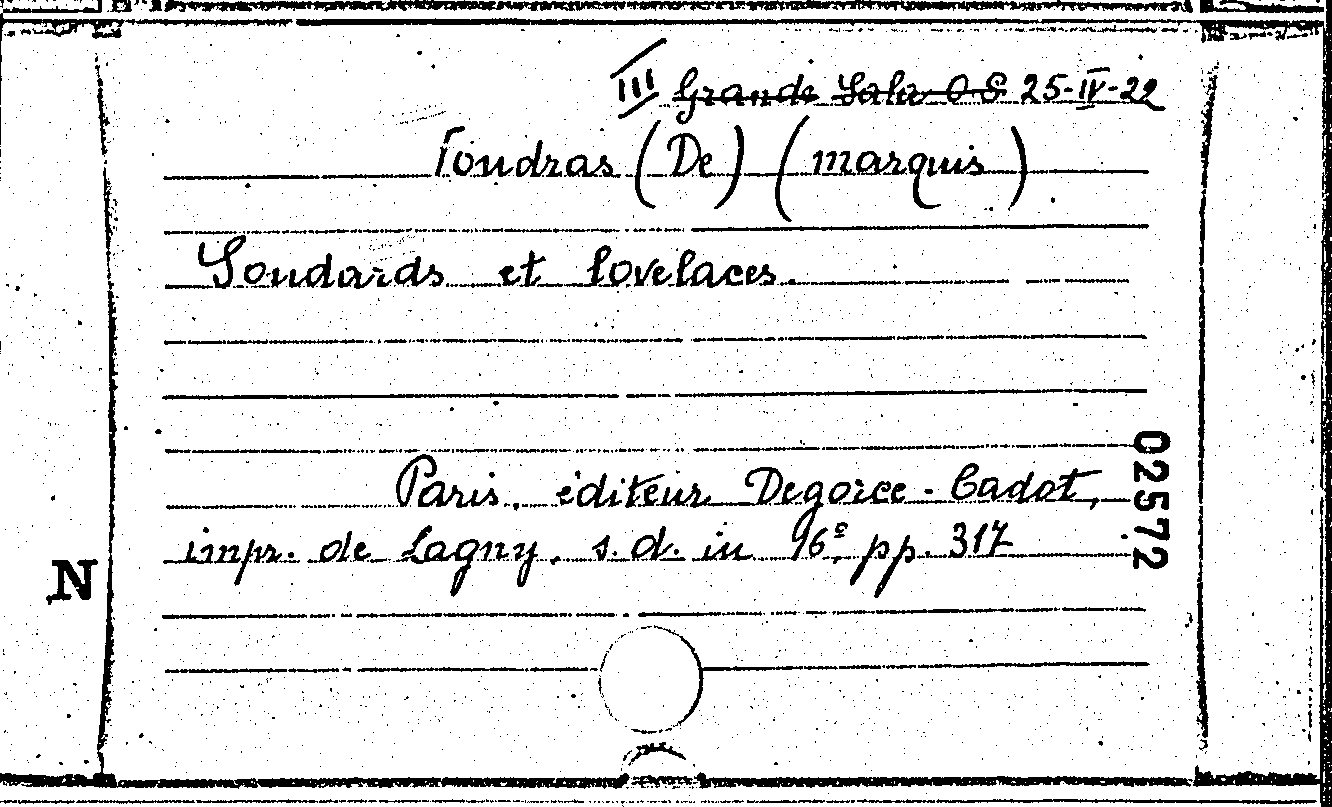 III Grande Sala O S 25-IV-22
Foudras (De) (marquis)
Soudards et lovelaces.
Paris, éditeur Degorce-Cadot,
impr. de Lagny, s.d. in 96º, pp. 317
02572
N